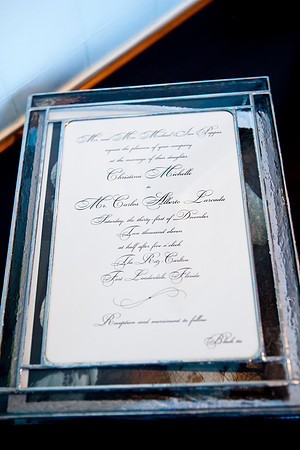 Mr. and Mrs. Michael Ian Pepper
request the pleasure of your company
at the marriage of their daughter
Christina Michelle
to
Mr. Carlos Alberto Larcada
Saturday, the thirty-first of December
Two thousand eleven
at half after five o'clock
The Ritz Carlton
Fort Lauderdale, Florida
Reception and merriment to follow
Black tie